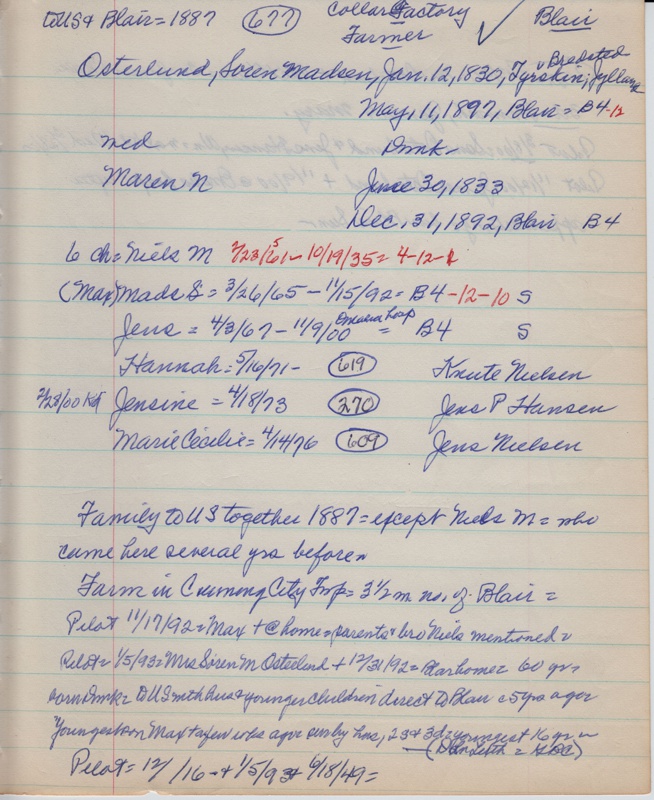 to US & Blair = 1887 (677) Collar Factory Blair
Farmer
Osterlund, Soren Madsen, Jan. 12, 1830, Tyrskin, Bredsted Jylland
May, 11, 1897, Blair = B4-12
med Dmk-
Maren N June 30, 1833
Dec. 31, 1892, Blair B4
6 ch = Niels M 2/23/61 - 10/19/35 = 4-12-1
(Max) Mads S = 3/26/65 - 11/15/92 = B4-12-10 S
Jens = 4/3/67 - 11/9/00 Omaha Hosp = B4 S
Hannah = 5/16/71 - (619) Knute Nielsen
2/23/00 Jensine = 4/18/73 (270) Jens P Hansen
Marie Cecilie = 4/14/76 (609) Jens Nielsen
Family to US together 1887 = except Niels M = who
came here several yrs before
Farm in Cuming City Twp = 3 1/2 m no. of Blair =
Pilot 11/17/92 = Max + @ home = parents & bro Niels mentioned =
Pilot = 1/5/93 = Mrs Soren M Osterlund + 12/31/92 = Blair home = 60 yrs
born Dmk = to US with hus & younger children direct to Blair = 5 yrs ago =
Youngest son Max + a few wks ago = surv by hus, 2s & 3d = youngest 16 yrs =
Pilot = 12/ /16 - + 1/5/93 + 6/18/49 =